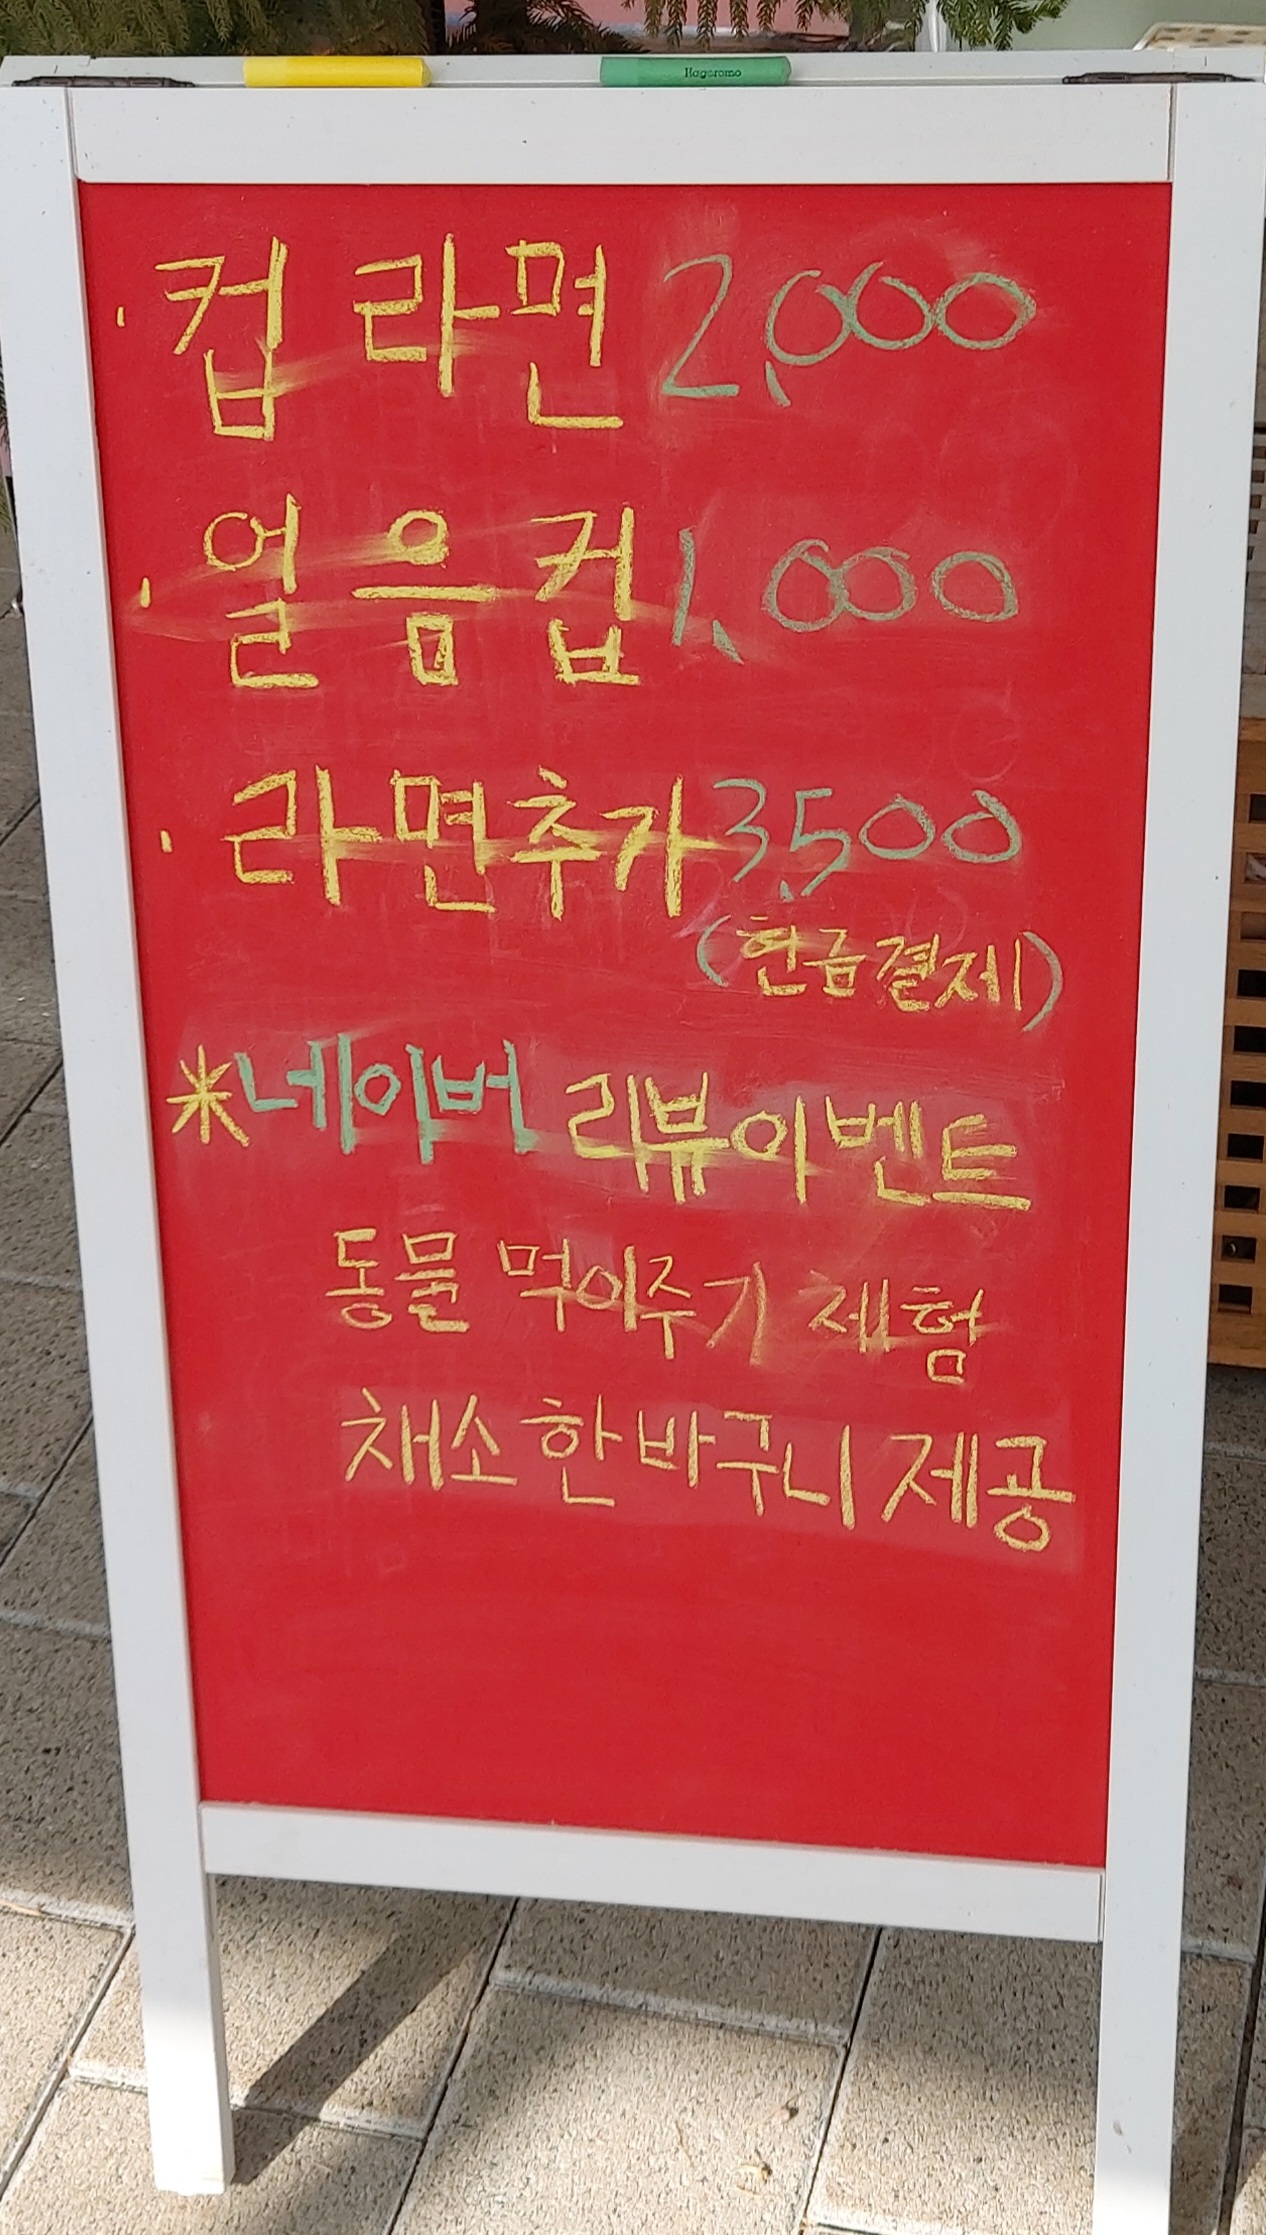 Hagoromo
· 컵 라면 2,000
· 얼음컵 1,000
· 라면추가 3,500
(현금결제)
*네이버 리뷰이벤트
동물 먹이주기 체험
채소 한바구니 제공